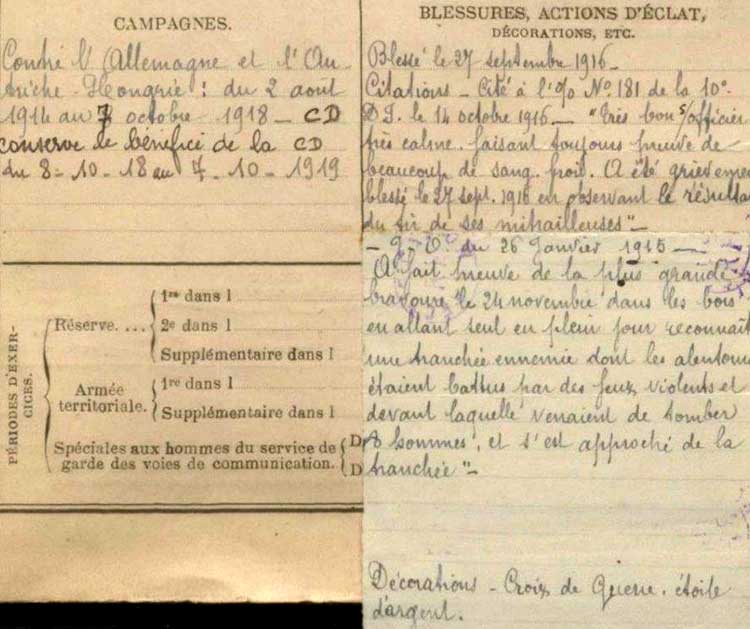 CAMPAGNES.
Contre l'Allemagne et l'Au
triche-Hongrie : du 2 août
1914 au 7 octobre 1918 – CD
conserve le bénéfice de la CD
du 8-10-18 au 7-10-1919
PÉRIODES D'EXER-
CICES.
Réserve. ...
1re dans l
2e dans l
Supplémentaire dans l
Armée
territoriale.
1re dans l
Supplémentaire dans l
Spéciales aux hommes du service de
garde des voies de communication.
D
D
BLESSURES, ACTIONS D'ÉCLAT,
DÉCORATIONS, ETC.
Blessé le 27 septembre 1916.
Citations – Cité à l'% No 181 de la 10e
D.I. le 14 octobre 1916 – "Très bon s/officier
très calme. faisant toujours preuve de
beaucoup de sang froid. A été grièvemen
blessé le 27 sept. 1916 en observant le résulta
du tir de ses mitrailleuses" –
– du 26 Janvier 1915 –
A fait preuve de la plus grande
bravoure le 24 novembre dans les bois
en allant seul en plein jour reconnaît
une tranchée ennemie dont les alentour
étaient battus par des feux violents et
devant laquelle venaient de tomber
8 hommes, et s'est approché de la
tranchée" –
Décorations – Croix de Guerre. étoile
d'argent.